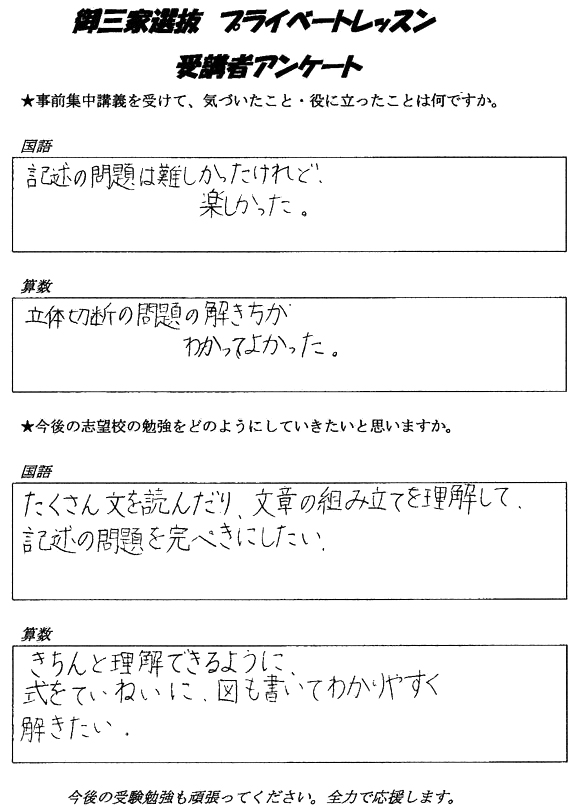 御三家選抜 プライベートレッスン
受講者アンケート
★事前集中講義を受けて、気づいたこと・役に立ったことは何ですか。
国語
記述の問題は難しかったけれど、
楽しかった。
算数
立体切断の問題の解きちが
わかってよかった。
★今後の志望校の勉強をどのようにしていきたいと思いますか。
国語
たくさん文を読んだり、文章の組み立てを理解して、
記述の問題を完ぺきにしたい。
算数
きちんと理解できるように、
式をていねいに、図も書いてわかりやすく
解きたい。
今後の受験勉強も頑張ってください。全力で応援します。